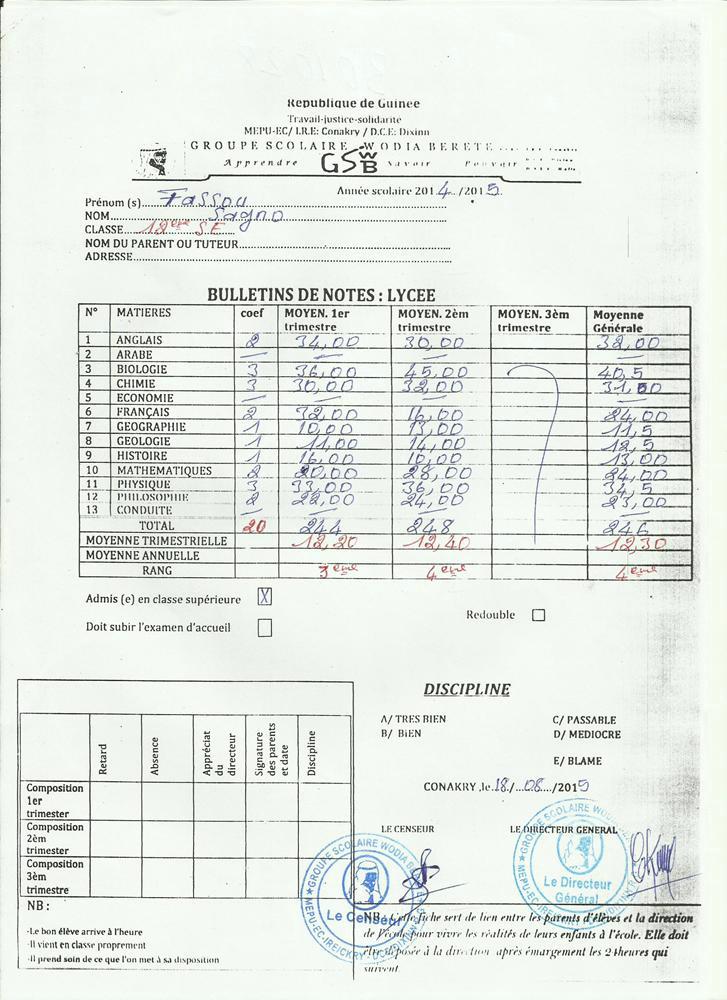 Republique de Guinee
Travail-justice-solidarite
MEPU-EC/ I.R.E: Conakry / D.C.E: Dixinn
GROUPE SCOLAIRE WODIA BERETE
Apprendre GSWB Savoir Pouvoir
Année scolaire 2014../2015.
Prénom (s)...Fassou
NOM...Sagno
CLASSE...12ème SE
NOM DU PARENT OU TUTEUR
ADRESSE
BULLETINS DE NOTES : LYCEE
N° MATIERES coef MOYEN. 1er trimestre MOYEN. 2èm trimestre MOYEN. 3èm trimestre Moyenne Générale
1 ANGLAIS 2 34,00 30,00 32,00
2 ARABE — — — —
3 BIOLOGIE 3 36,00 45,00 40,5
4 CHIMIE 3 30,00 32,00 31,00
5 ECONOMIE — — — —
6 FRANÇAIS 2 32,00 16,00 24,00
7 GEOGRAPHIE 1 10,00 13,00 11,5
8 GEOLOGIE 1 11,00 14,00 12,5
9 HISTOIRE 1 16,00 10,00 13,00
10 MATHEMATIQUES 2 20,00 28,00 24,00
11 PHYSIQUE 3 33,00 36,00 34,5
12 PHILOSOPHIE 2 22,00 24,00 23,00
13 CONDUITE — — — —
TOTAL 20 244 248 246
MOYENNE TRIMESTRIELLE 12,20 12,40 12,30
MOYENNE ANNUELLE
RANG 3ème 4ème 4ème
Admis (e) en classe supérieure X
Redouble
Doit subir l'examen d'accueil
DISCIPLINE
A/ TRES BIEN C/ PASSABLE
B/ BIEN D/ MEDIOCRE
E/ BLAME
CONAKRY ,le 18./...08.../2015
LE CENSEUR LE DIRECTEUR GENERAL
Retard Absence Appréciat du directeur Signature des parents et date Discipline
Composition 1er trimester
Composition 2èm trimester
Composition 3èm trimestre
GROUPE SCOLAIRE WODIA
MEPU-EC/IRE/CKRY
Le Censeur
GROUPE SCOLAIRE WODIA
MEPU-EC/IRE
Le Directeur Général
NB :
-Le bon élève arrive à l'heure
-Il vient en classe proprement
-Il prend soin de ce que l'on met à sa disposition
NB: Cette fiche sert de lien entre les parents d'élèves et la direction
de l'école pour vivre les réalités de leurs enfants à l'école. Elle doit
être déposée à la direction après émargement les 24heures qui
suivent